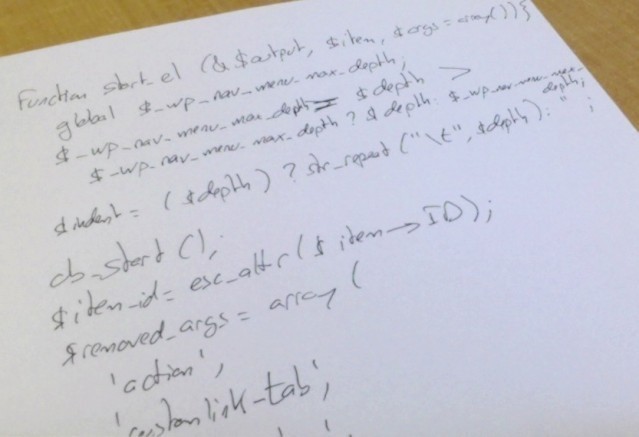 Function start_el (&$output, $item, $args = array()){
global $_wp_nav_menu_max_depth;
$_wp_nav_menu_max_depth = $depth >
$_wp_nav_menu_max_depth ? $depth : $_wp_nav_menu_max_
depth;
$indent = ( $depth ) ? str_repeat ("\t", $depth) : '' ;
ob_start ();
$item_id = esc_attr ( $item->ID);
$removed_args = array (
'action',
'customlink-tab',